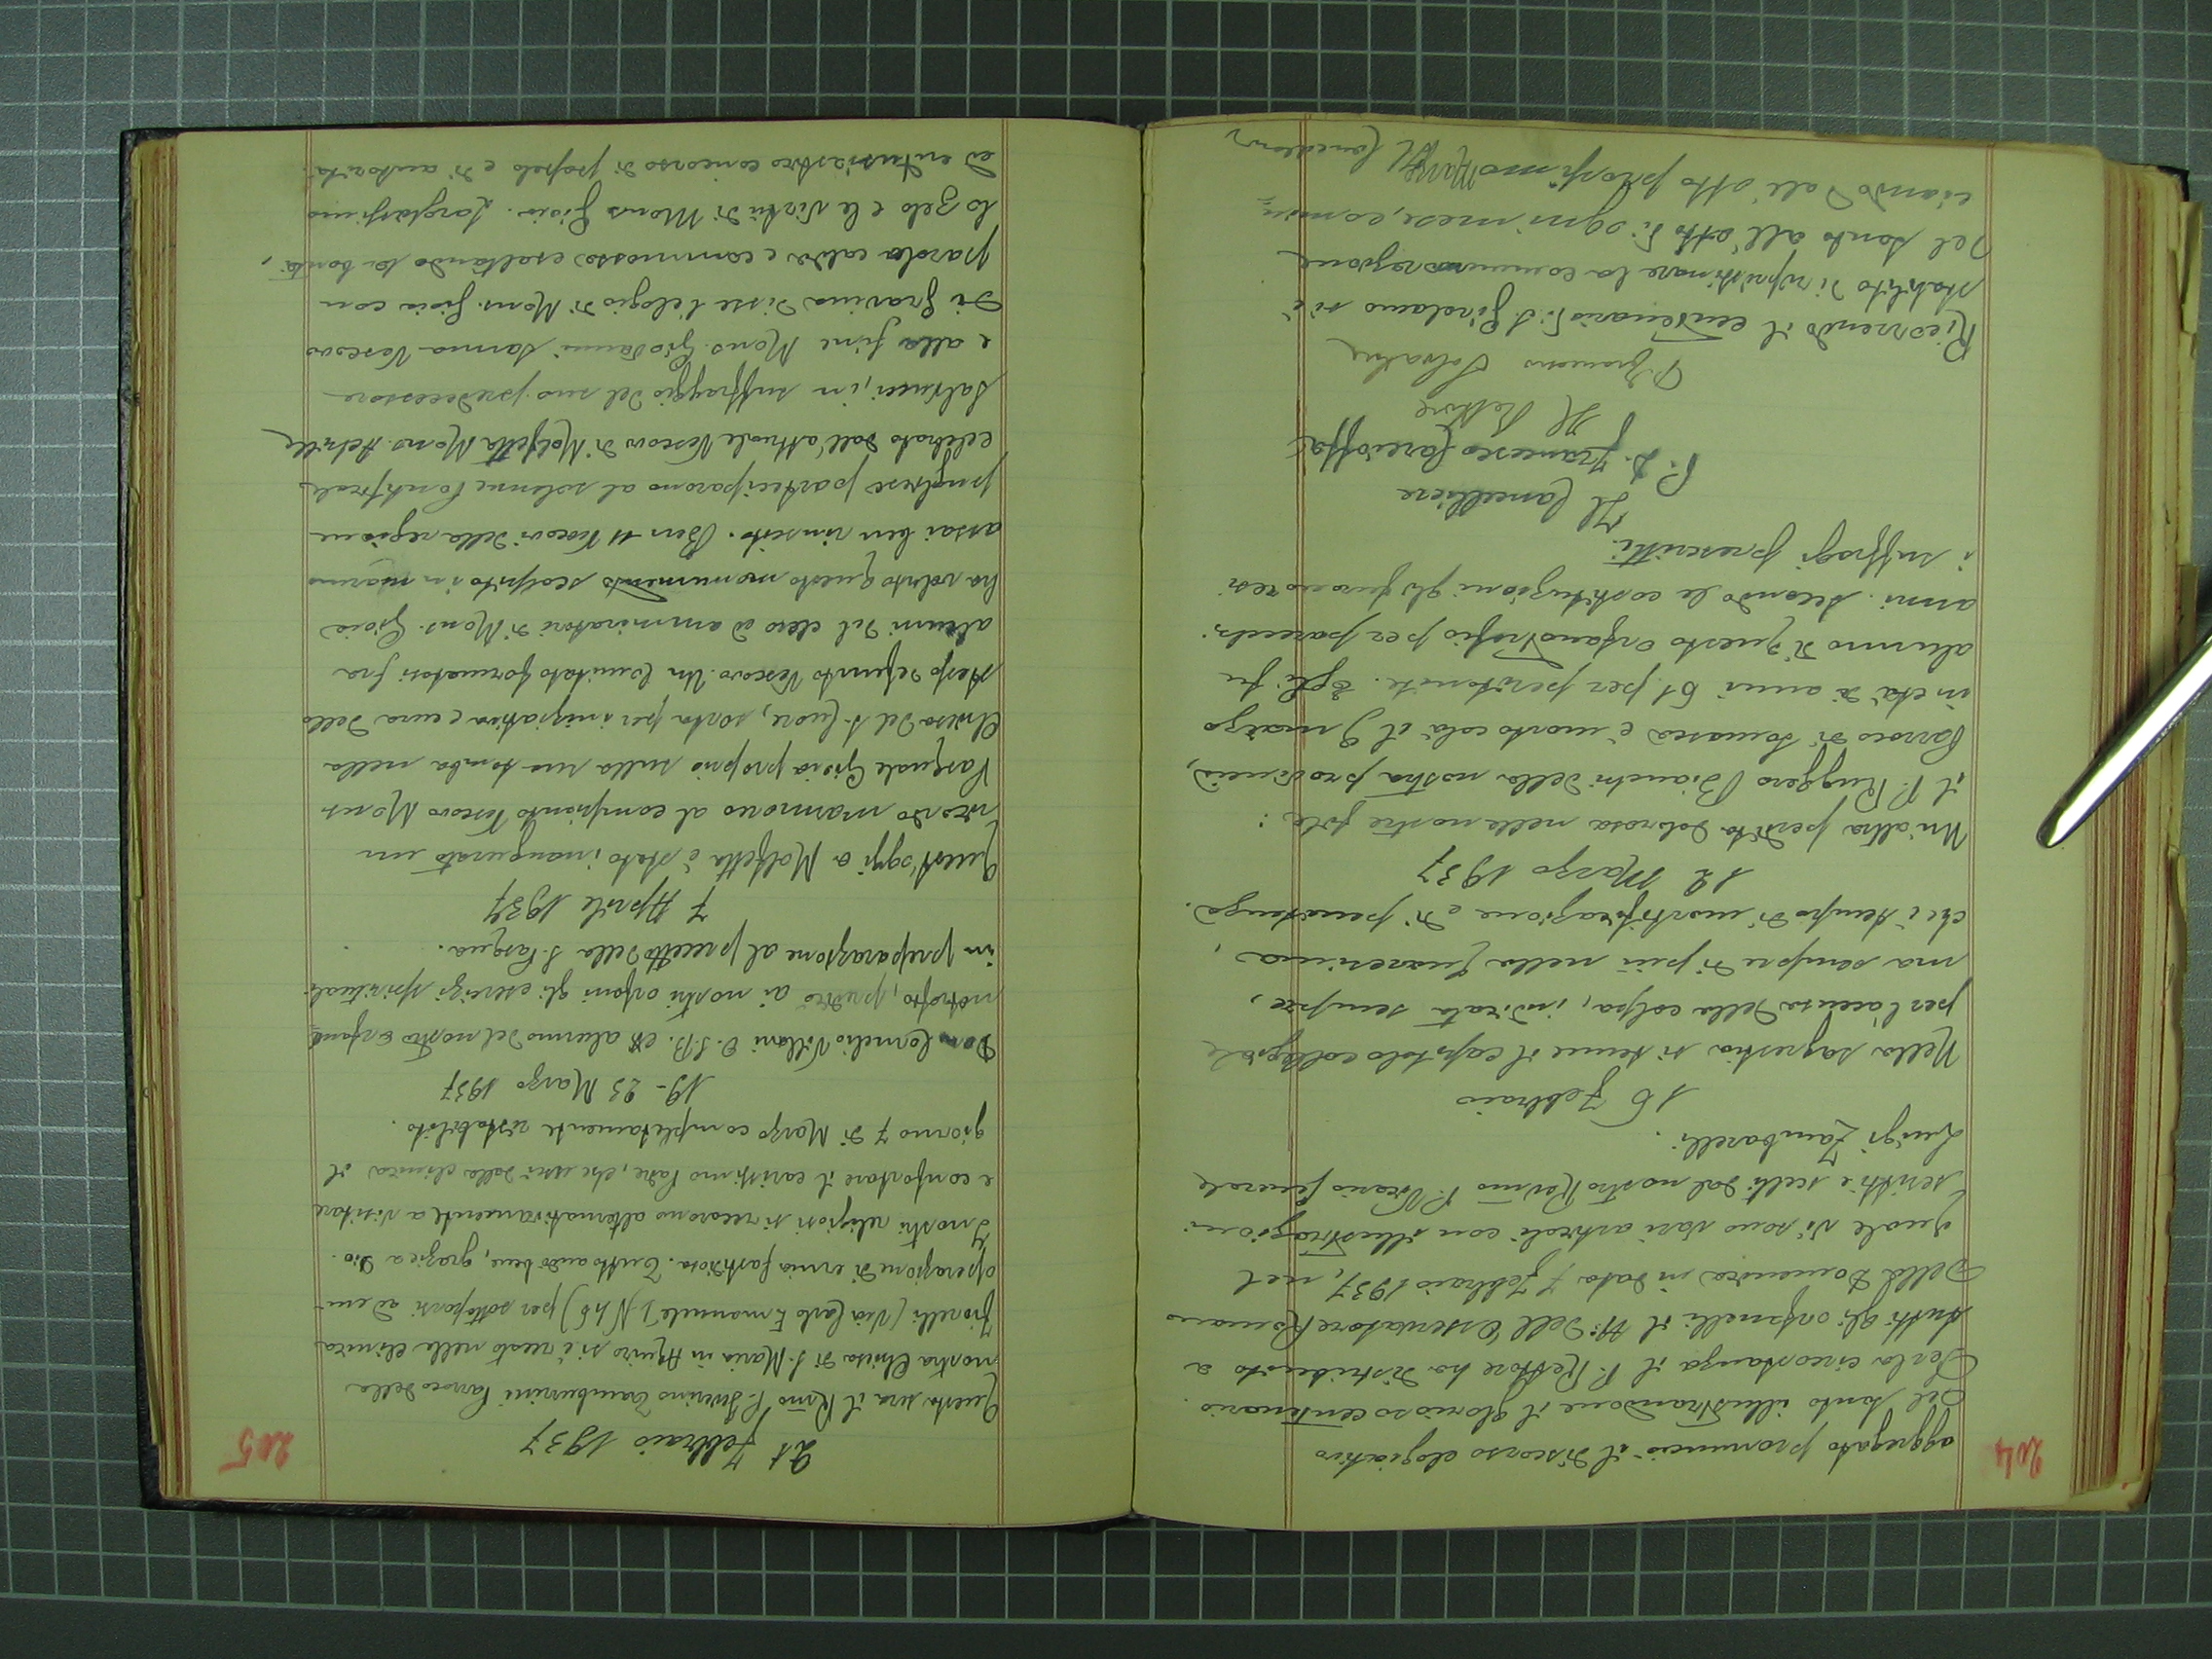 204
aggregato pronunciò il discorso elogiativo
del Santo illustrandone il glorioso centenario.
Per la circostanza il P. Rettore ha distribuito a
tutti gli orfanelli il N: dell'Osservatore Romano
della Domenica in data 7 Febbraio 1937, nel
quale vi sono vari articoli con illustrazioni
scritti e scelti dal nostro Rev.mo P. Vicario Generale
Luigi Zambarelli.
16 Febbraio
Nella sagrestia si tenne il capitolo collegiale
per l'accusa della colpa, indicata sempre,
ma sempre di più nella Quaresima,
che è tempo di mortificazione e di penitenza.
12 Marzo 1937
Un'altra perdita dolorosa nelle nostre file:
il P. Ruggero Bianchi della nostra provincia,
Parroco di Somasca è morto colà il 9 marzo
in età di anni 61 per peritonite. Egli fu
alunno di questo Orfanotrofio per parecchi
anni. Secondo le costituzioni gli furono resi
i suffragi prescritti.
Il Cancelliere
P. D. Francesco Carcioffa
Il Rettore
Ricorrendo il centenario di S. Girolamo si è
stabilito di ripristinare la commemorazione
del Santo all'otto di ogni mese, comin=
ciando dall'otto prossimo Marzo
205
21 Febbraio 1937
Questa sera il Rmo P. Severino Tamburrini Parroco della
nostra Chiesa di S. Maria in Aquiro si è recato nella clinica
Fiorelli (Via Carlo Emanuele I, N 46) per sottoporsi ad un'
operazione di ernia fastidiosa. Tutto andò bene, grazie a Dio.
I nostri religiosi si recarono alternativamente a visitare
e confortare il carissimo Padre, che uscì dalla clinica il
giorno 7 di Marzo completamente ristabilito.
19 - 23 Marzo 1937
Don Cornelio Villani O.S.B. ex alunno del nostro Orfano=
notrofio, predicò ai nostri orfani gli esercizi spirituali
in preparazione al precetto della S. Pasqua.
7 Aprile 1937
Quest'oggi a Molfetta è stato inaugurato un
ricordo marmoreo al compianto Vescovo Mons
Pasquale Gioia proprio sulla sua tomba nella
Chiesa del S. Cuore, sorta per iniziativa e cura dello
stesso defunto Vescovo. Un Comitato formatosi fra
alunni del clero ed ammiratori di Mons. Gioia
ha voluto questo monumento scolpito in marmo
assai ben riuscito. Ben 11 Vescovi della regione
pugliese parteciparono al solenne Pontificale
celebrato dall'attuale Vescovo di Molfetta Mons. Achille
Salvucci, in suffraggio del suo predecessore
e alla fine Mons. Giovanni Sanna Vescovo
di Gravina disse l'elogio di Mons. Gioia con
parola calda e commossa esaltando la bontà,
lo zelo e le virtù di Mons Gioia. Larghissimo
ed entusiastico concorso di popolo e di autorità.